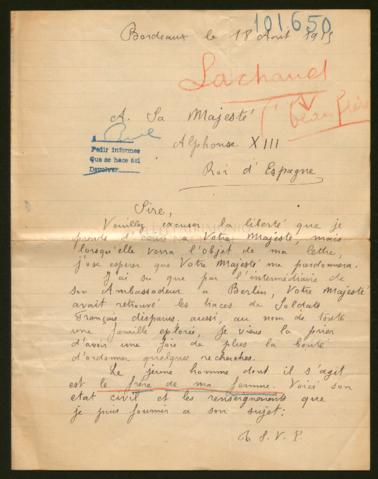 101.650
Bordeaux le 18 Août 1915
Lachaud
beau frère
A Sa Majesté
Alphonse XIII
Roi d'Espagne
A
Pedir informes
Que se hace así
Devolver
Sire,
Veuillez excuser la liberté que je
prends d'écrire à Votre Majesté, mais
lorsqu'elle verra l'objet de ma lettre,
j'ose espérer que Votre Majesté me pardonnera.
J'ai su que par l'intermédiaire de
son Ambassadeur à Berlin, Votre Majesté
avait retrouvé les traces de Soldats
Français disparus, aussi, au nom de toute
une famille eplorée, je viens la prier
d'avoir une fois de plus la bonté
d'ordonner quelques recherches.
Le jeune homme dont il s'agit
est le frère de ma femme. Voici son
etat civil et les renseignements que
je puis fournir a son sujet:
T. S. V. P.